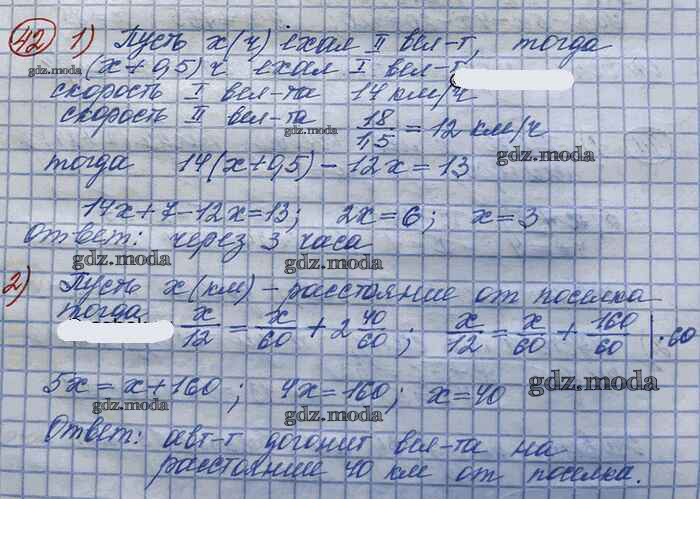 42 1) Пусть x(ч) ехал II вел-т, тогда
gdz.moda (x+0,5) ч ехал I вел-т
скорость I вел-та 14 км/ч
скорость II вел-та gdz.moda 18/1,5 = 12 км/ч
gdz.moda
тогда 14(x+0,5) - 12x = 13
14x+7-12x=13; 2x=6; x=3
Ответ: через 3 часа
gdz.moda gdz.moda
2) Пусть x(км) - расстояние от поселка
тогда
x/12 = x/60 + 2 40/60; x/12 = x/60 + 160/60 |·60
5x = x+160; 4x=160; x=40 gdz.moda
gdz.moda gdz.moda
Ответ: авт-т догонит вел-та на
расстоянии 40 км от поселка.
gdz.moda gdz.moda